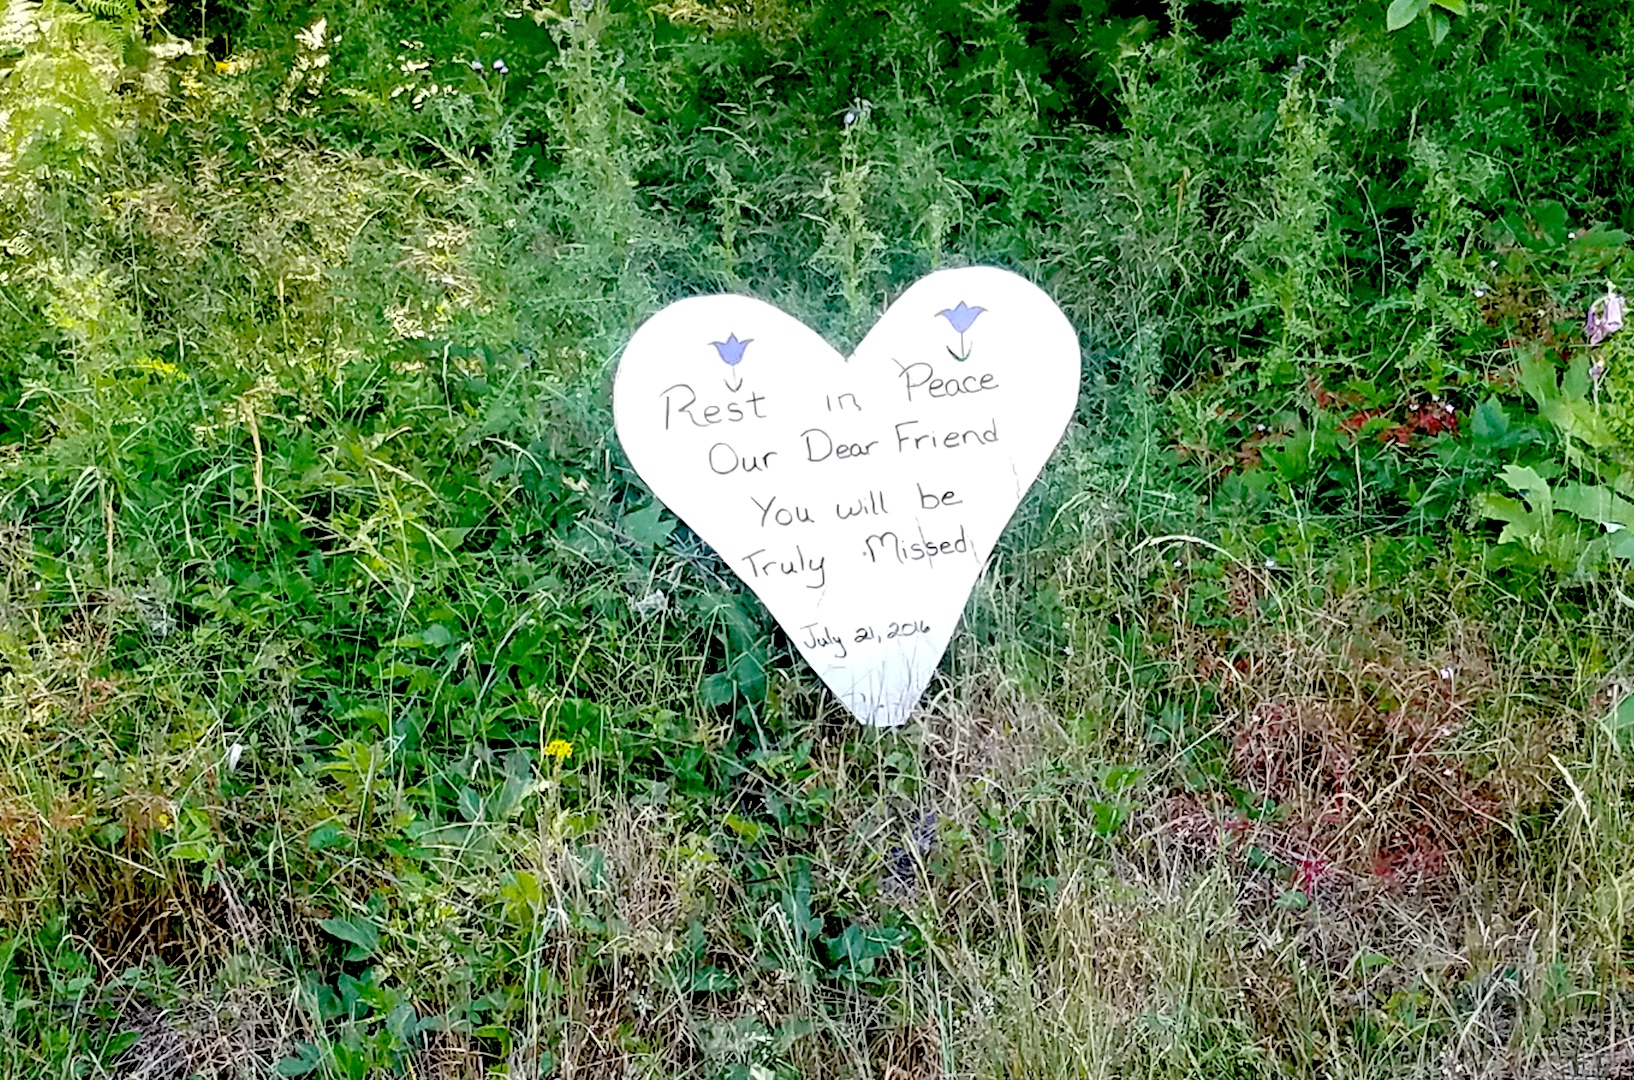 Rest in Peace
Our Dear Friend
You will be
Truly Missed
July 21, 2016